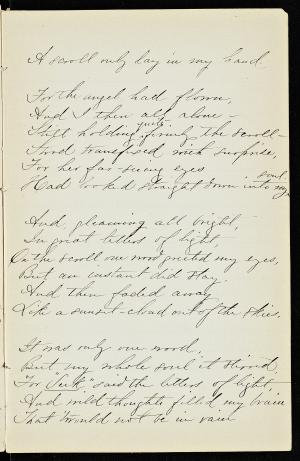 A scroll only lay in my hand.
For the angel had flown,
And I then all alone -
quite
Still holding firmly the scroll -
Stood transfixed with surprise,
For her far-seeing eyes
soul.
Had looked straight down into my
And, gleaming all bright,
In great letters of light,
On the scroll one word greeted my eyes,
But an instant did stay.
And then faded away
Like a sunset-cloud out of the skies.
It was only one word,
But my whole soul it stirred,
For "Seek" said the letters of light,
And wild thoughts filled my brain
That would not be in vain